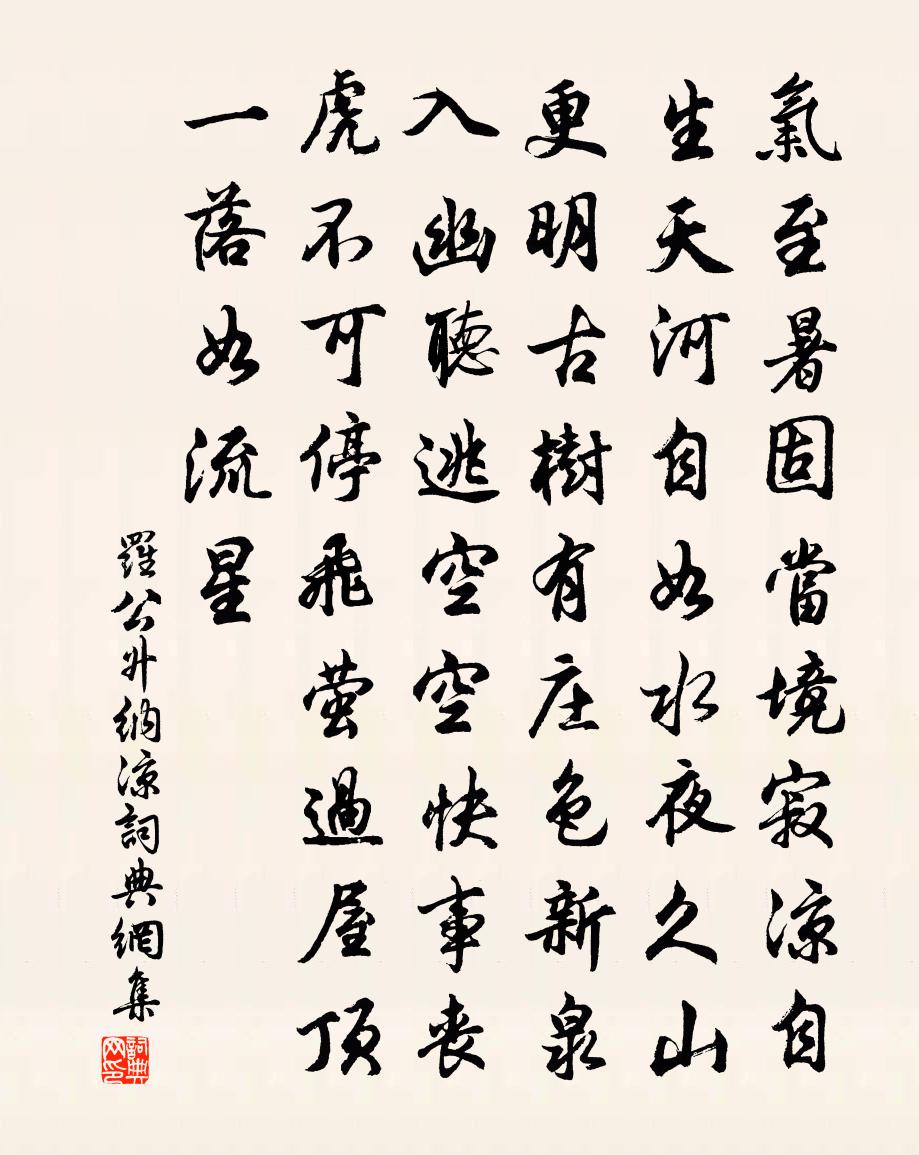 氣至暑固當境寂涼自
生天河自如水夜久山
更明古樹有庄色新泉
入幽聽逃空空快事喪
虎不可停飛螢過屋頂
一落如流星
羅公升納涼詞典網集
詞典网印